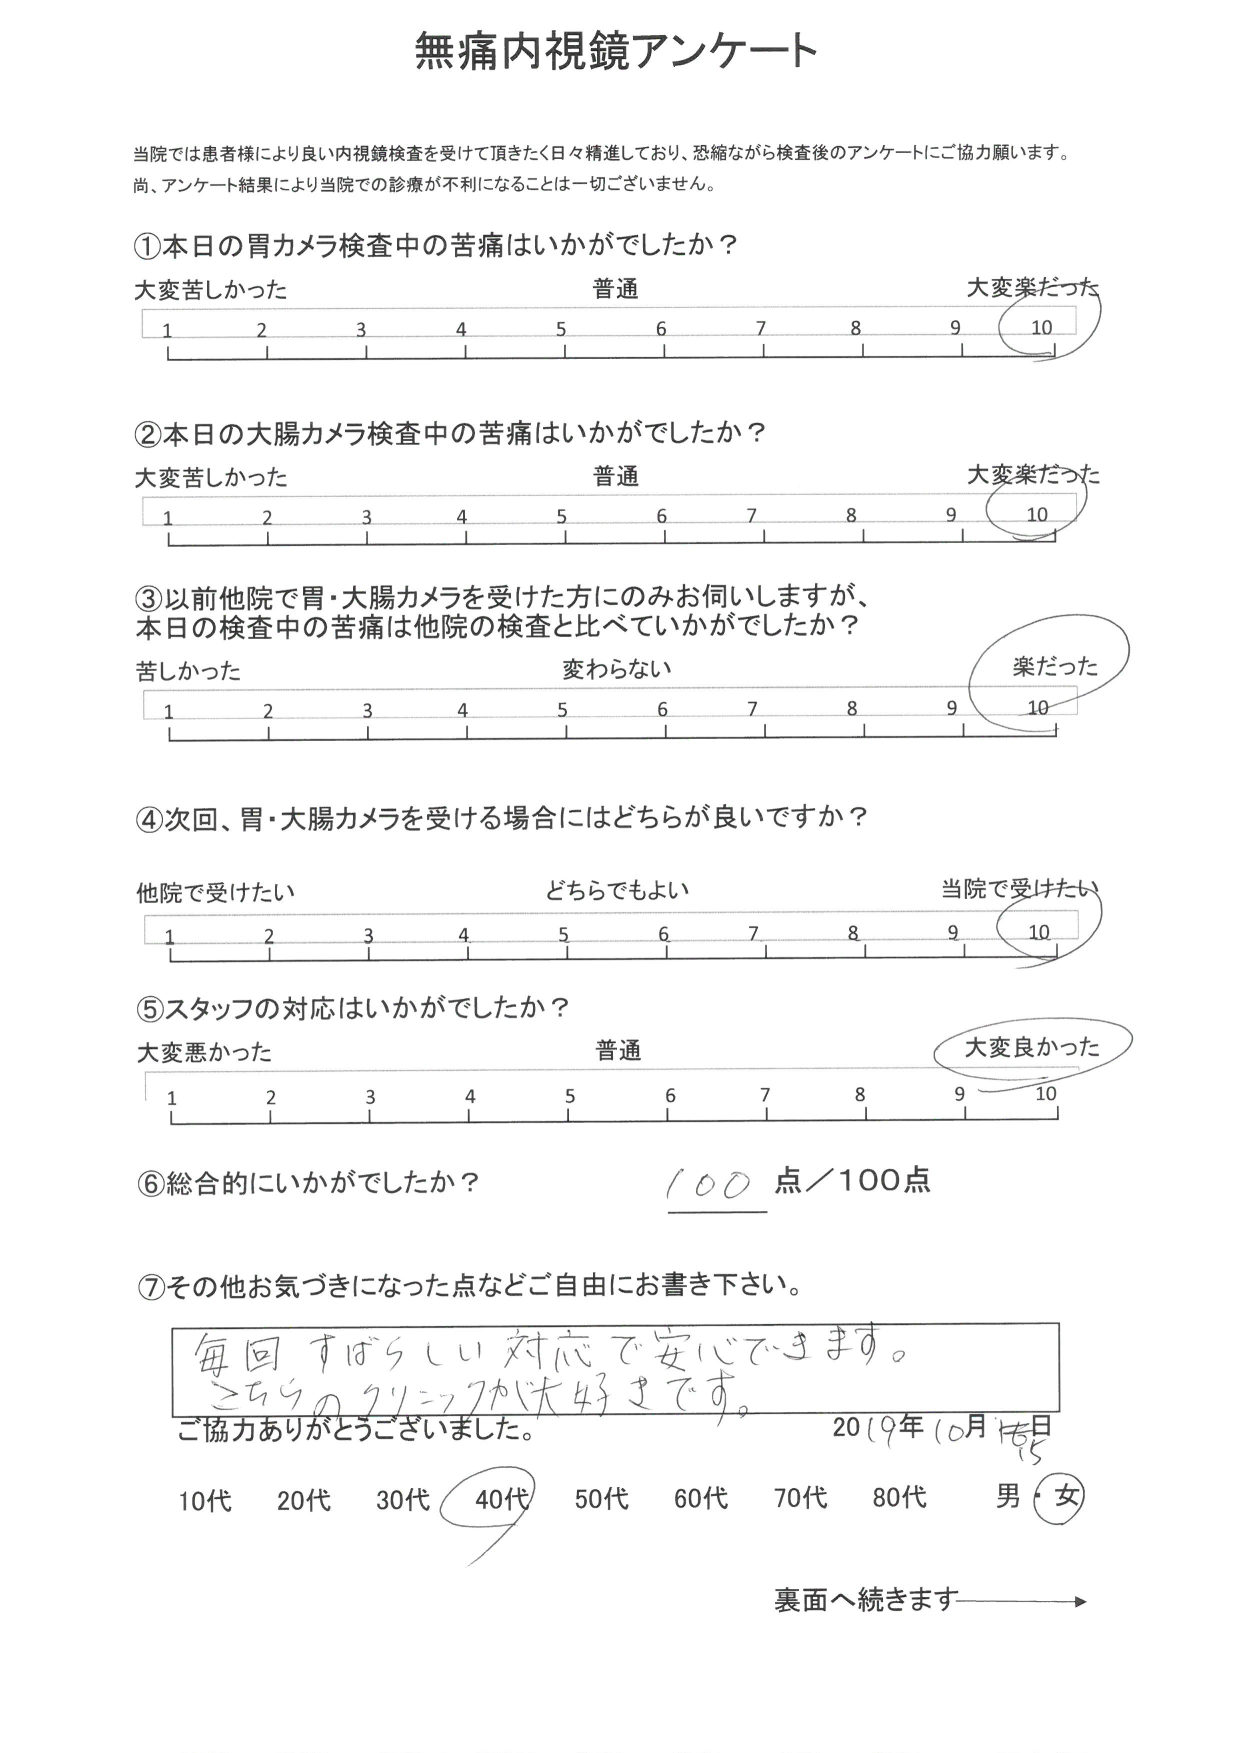 無痛内視鏡アンケート
当院では患者様により良い内視鏡検査を受けて頂きたく日々精進しており、恐縮ながら検査後のアンケートにご協力願います。
尚、アンケート結果により当院での診療が不利になることは一切ございません。
①本日の胃カメラ検査中の苦痛はいかがでしたか？
大変苦しかった 普通 大変楽だった
1 2 3 4 5 6 7 8 9 10
②本日の大腸カメラ検査中の苦痛はいかがでしたか？
大変苦しかった 普通 大変楽だった
1 2 3 4 5 6 7 8 9 10
③以前他院で胃・大腸カメラを受けた方にのみお伺いしますが、
本日の検査中の苦痛は他院の検査と比べていかがでしたか？
苦しかった 変わらない 楽だった
1 2 3 4 5 6 7 8 9 10
④次回、胃・大腸カメラを受ける場合にはどちらが良いですか？
他院で受けたい どちらでもよい 当院で受けたい
1 2 3 4 5 6 7 8 9 10
⑤スタッフの対応はいかがでしたか？
大変悪かった 普通 大変良かった
1 2 3 4 5 6 7 8 9 10
⑥総合的にいかがでしたか？ 100 点／100点
⑦その他お気づきになった点などご自由にお書き下さい。
毎回 すばらしい 対応で安心できます。
こちらのクリニックが大好きです。
ご協力ありがとうございました。 2019年10月15日
10代 20代 30代 40代 50代 60代 70代 80代 男・女
裏面へ続きます